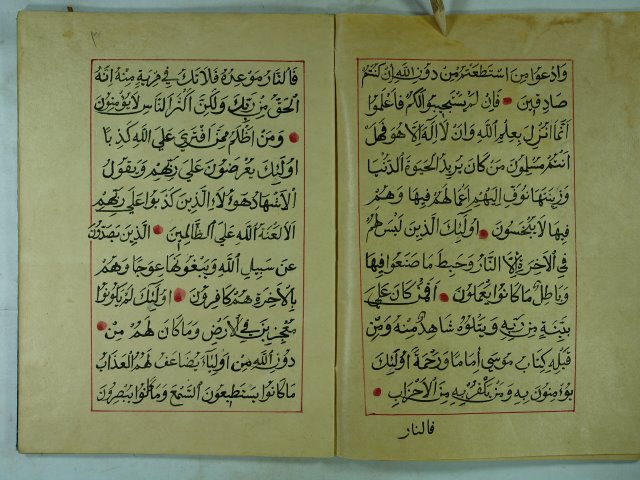 وَادْعُوا مَنِ اسْتَطَعْتُمْ مِنْ دُونِ اللَّهِ إِنْ كُنْتُمْ
صَادِقِينَ فَإِنْ لَمْ يَسْتَجِيبُوا لَكُمْ فَاعْلَمُوا
أَنَّمَا أُنْزِلَ بِعِلْمِ اللَّهِ وَأَنْ لَا إِلَهَ إِلَّا هُوَ فَهَلْ
أَنْتُمْ مُسْلِمُونَ مَنْ كَانَ يُرِيدُ الْحَيَوةَ الدُّنْيَا
وَزِينَتَهَا نُوَفِّ إِلَيْهِمْ أَعْمَالَهُمْ فِيهَا وَهُمْ
فِيهَا لَا يُبْخَسُونَ أُولَئِكَ الَّذِينَ لَيْسَ لَهُمْ
فِي الْآخِرَةِ إِلَّا النَّارُ وَحَبِطَ مَا صَنَعُوا فِيهَا
وَبَاطِلٌ مَا كَانُوا يَعْمَلُونَ أَفَمَنْ كَانَ عَلَى
بَيِّنَةٍ مِنْ رَبِّهِ وَيَتْلُوهُ شَاهِدٌ مِنْهُ وَمِنْ
قَبْلِهِ كِتَابُ مُوسَى إِمَامًا وَرَحْمَةً أُولَئِكَ
يُؤْمِنُونَ بِهِ وَمَنْ يَكْفُرْ بِهِ مِنَ الْأَحْزَابِ
فالنار
٣
فَالنَّارُ مَوْعِدُهُ فَلَا تَكُ فِي مِرْيَةٍ مِنْهُ إِنَّهُ
الْحَقُّ مِنْ رَبِّكَ وَلَكِنَّ أَكْثَرَ النَّاسِ لَا يُؤْمِنُونَ
وَمَنْ أَظْلَمُ مِمَّنِ افْتَرَى عَلَى اللَّهِ كَذِبًا
أُولَئِكَ يُعْرَضُونَ عَلَى رَبِّهِمْ وَيَقُولُ
الْأَشْهَادُ هَؤُلَاءِ الَّذِينَ كَذَبُوا عَلَى رَبِّهِمْ
أَلَا لَعْنَةُ اللَّهِ عَلَى الظَّالِمِينَ الَّذِينَ يَصُدُّونَ
عَنْ سَبِيلِ اللَّهِ وَيَبْغُونَهَا عِوَجًا وَهُمْ
بِالْآخِرَةِ هُمْ كَافِرُونَ أُولَئِكَ لَمْ يَكُونُوا
مُعْجِزِينَ فِي الْأَرْضِ وَمَا كَانَ لَهُمْ مِنْ
دُونِ اللَّهِ مِنْ أَوْلِيَاءَ يُضَاعَفُ لَهُمُ الْعَذَابُ
مَا كَانُوا يَسْتَطِيعُونَ السَّمْعَ وَمَا كَانُوا يُبْصِرُونَ